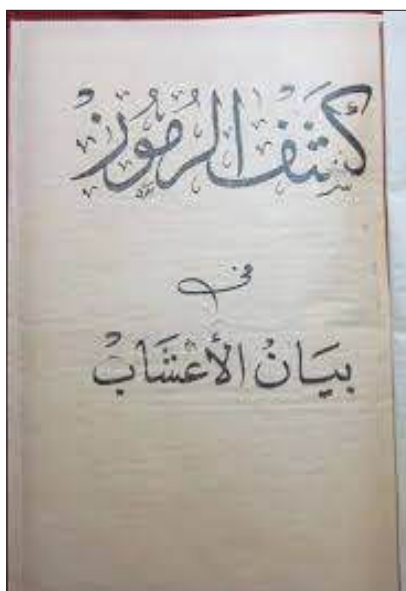 كشف الرموز
في
بيان الأعشاب